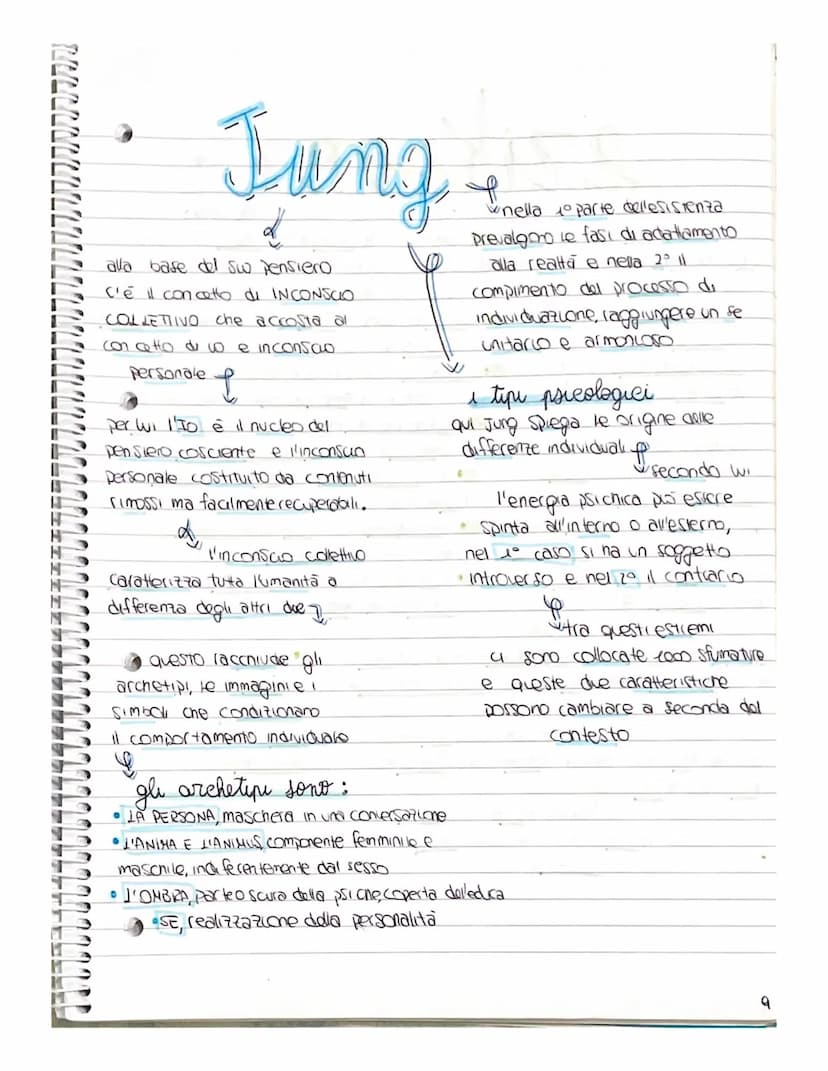 Jung
alla base del suo pensiero
c'è il concetto di INCONSCIO
COLLETIVO che accosta al
concetto di io e inconscio
personale
per lui l'Io è il nucleo del
pensiero cosciente e l'inconscio
personale costituito da contenuti
rimossi ma facilmente recuperabili.
l'inconscio collettivo
caratterizza tutta l'umanità a
differenza degli altri due
questo racchiude gli
archetipi, le immagini e i
simboli che condizionano
il comportamento individuale
gli archetipi sono:
• LA PERSONA, maschera in una conversazione
• L'ANIMA E L'ANIMUS, componente femminile e
maschile, indiferentemente dal sesso
• L'OMBRA, parte oscura della psiche, coperta dell'educa
• SE, realizzazione della personalità
nella 1º parte dell'esistenza
prevalgono le fasi di adattamento
alla realtà e nella 2º il
compimento del processo di
individuazione, raggiungere un se
unitario e armonioso
i tipi psicologici
qui Jung spiega le origine delle
differenze individuali
secondo lui
l'energia psichica può essere
spinta all'interno o all'esterno,
nel 1º caso si ha un soggetto
introverso e nel 2º il contrario
tra questi estremi
ci sono collocate 1000 sfumature
e queste due caratteristiche
possono cambiare a seconda del
contesto
9